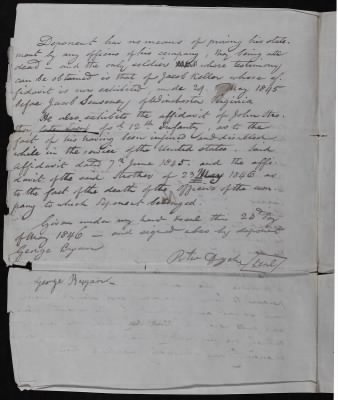 Deponent has no means of proving his state-
ment by any officers of his company, they being all
dead - and the only soldier whose testimony
can be obtained is that of Jacob Keller whose af-
fidavit is now exhibited made 24 May 1845
before Jacob Senseney of Winchester Virginia
He also exhibits the affidavit of John
of 12th Infantry, as to the
fact of his having been injured
while in the service of the United States. Said
affidavit dated 7th June 1845. and the affi-
davit of the said Strother of 23 May 1846 as
to the fact of the death of the officers of the com-
pany to which Deponent belonged.
Given under my hand & seal this 26th Day
of May 1846 - and signed also by deponent
George Bryan
Peter (Seal)
George Bryan